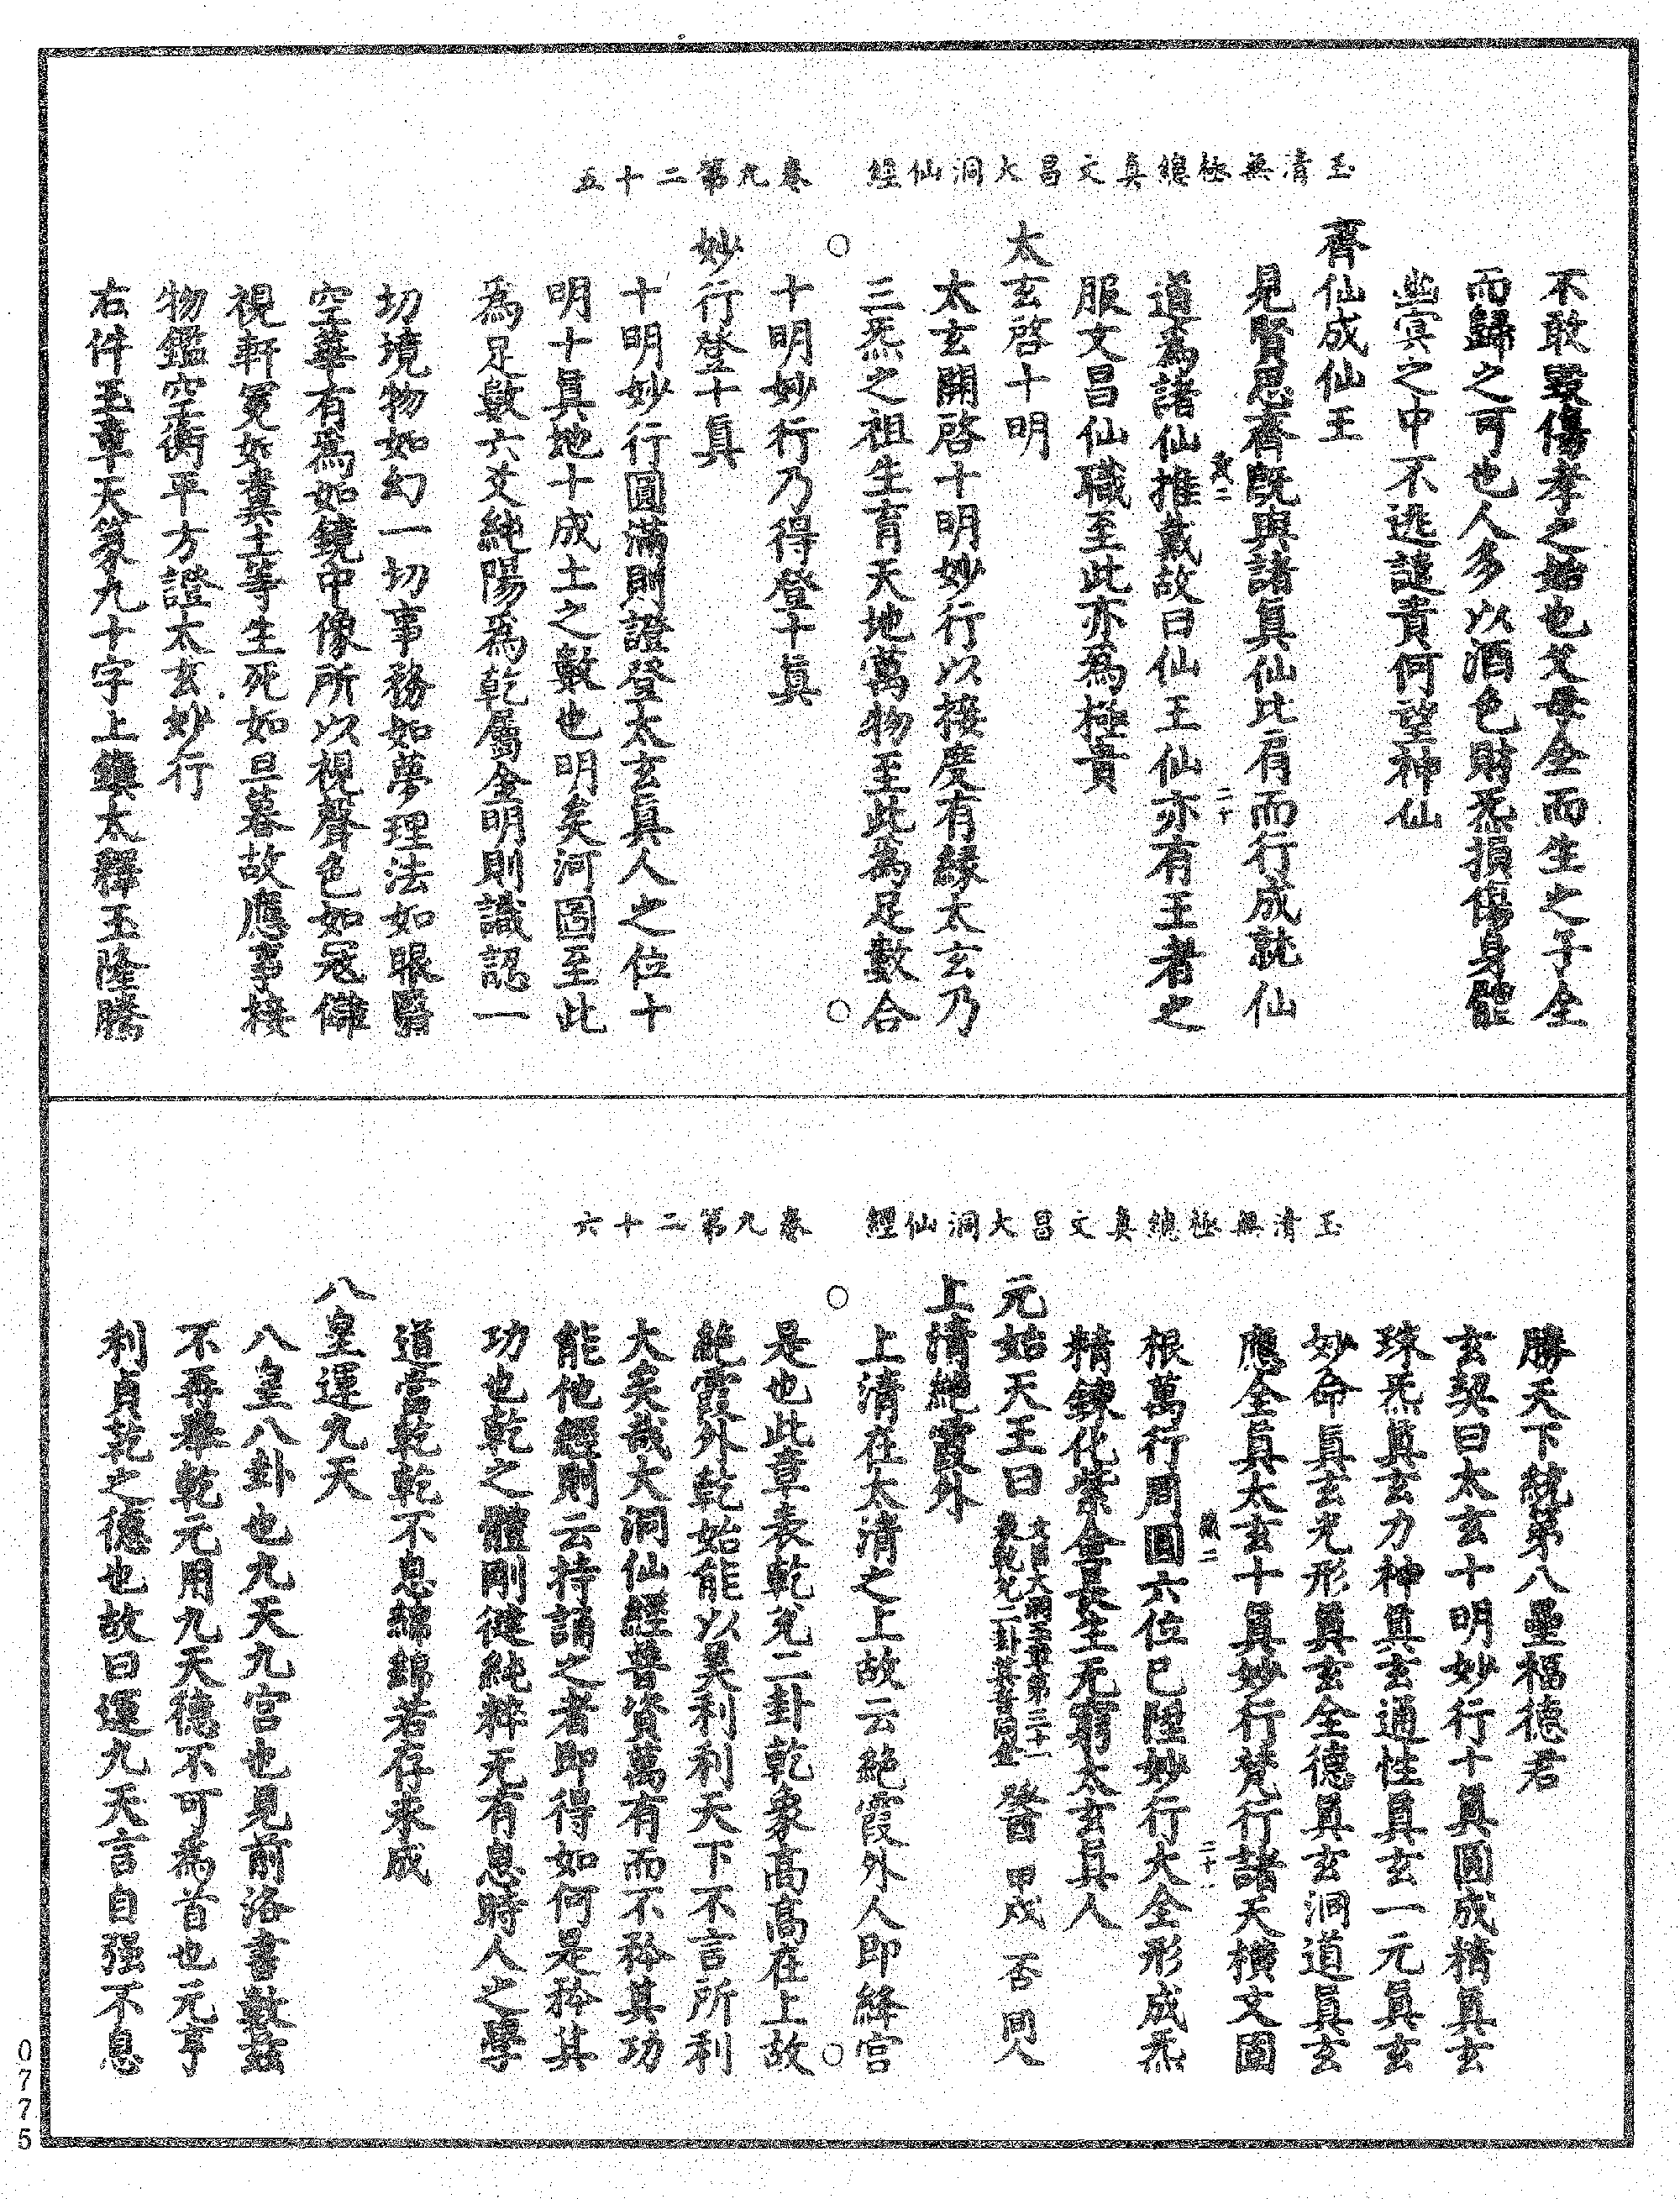 玉清無極總真文昌大洞仙經　卷九第二十五
不敢毀傷孝之始也父母全而生之子全
而歸之可也人多以酒色財炁損傷身體
幽冥之中不逃譴責何望神仙
齊仙成仙王
見賢思齊既與諸真仙比肩而行成就仙
道為諸仙推戴故曰仙王仙亦有王者之
服文昌仙職至此亦為極貴
太玄啓十明
太玄開啓十明妙行以接慶有緣太玄乃
三炁之祖生育天地萬物至此為足數合
十明妙行乃得登十真
妙行登十真
十明妙行圓滿則證登太玄真人之位十
明十具地十成土之數也明矣河圖至此
為足數六爻純陽為乾屬金明則識認一
切境物如幻一切事務如夢理法如眼翳
空華有為如鏡中像所以視聲色如冦讎
視軒冕如糞土等生死如旦暮故應事接
物鑑空衡平方證太玄妙行
右件玉章天篆九十字上鎮太釋玉隆騰
玉清無極總真文昌大洞仙經　卷九第二十六
勝天下統第八壘福德君
玄契曰太玄十明妙行十真圓成精真玄
珠炁真玄力神真玄通性真玄一元真玄
妙命真玄光形真玄全德真玄洞道真玄
應全真太玄十真妙行梵行諸天橫文圖
根萬行周圓六位已陞妙行大全形成炁
精鍊化紫金長生无窮太玄真人
元始天王曰 文昌大洞玉章第三十一 豫 甲戌 否 同人
上清絶霞外
上清在太清之上故云絶霞外人即絳宮
是也此章表乾兊二卦乾象高高在上故
絶霞外乾始能以美利利天下不言所利
大矣哉大洞仙經普資萬有而不矜其功
能他經則云持誦之者即得如何是矜其
功也乾之體剛健純粹无有息時人之學
道當乾乾不息綿綿若存來成
八皇運九天
八皇八卦也九天九宮也見前洛書數茲
不再舉乾元用九天德不可為首也元亨
利貞乾之德也故曰運九天言自强不息
0775